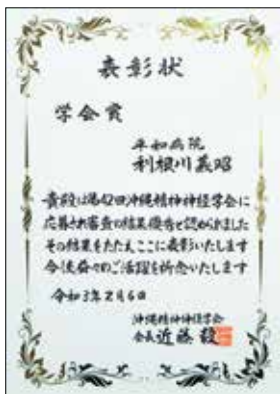 表彰状
学会賞
平和病院
利根川義昭
貴殿は第42回沖縄精神神経学会に
応募され審査の結果優秀と認められました
その結果をたたえここに表彰いたします
今後益々のご活躍を祈念いたします
令和3年2月6日
沖縄精神神経学会
会長 近藤毅